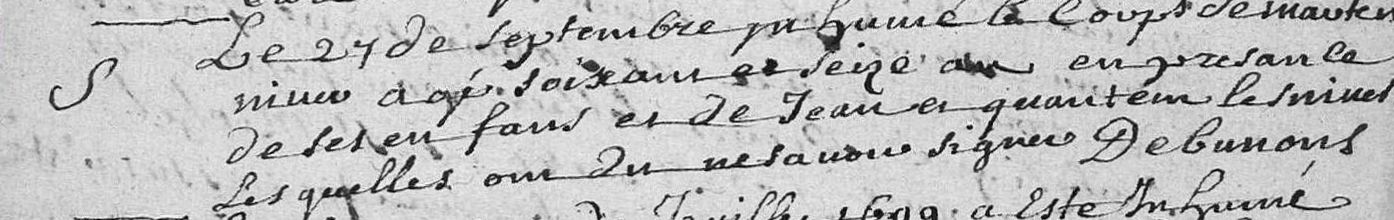 Le 27 de septembre in humé le Coups de mauten
S niver agé soixant et seize an en presance
de ses en fans et de Jean et quantem les niver
Lesquelles ont du ne savoir signer Debunons
Juillet 1699 a Este In humé